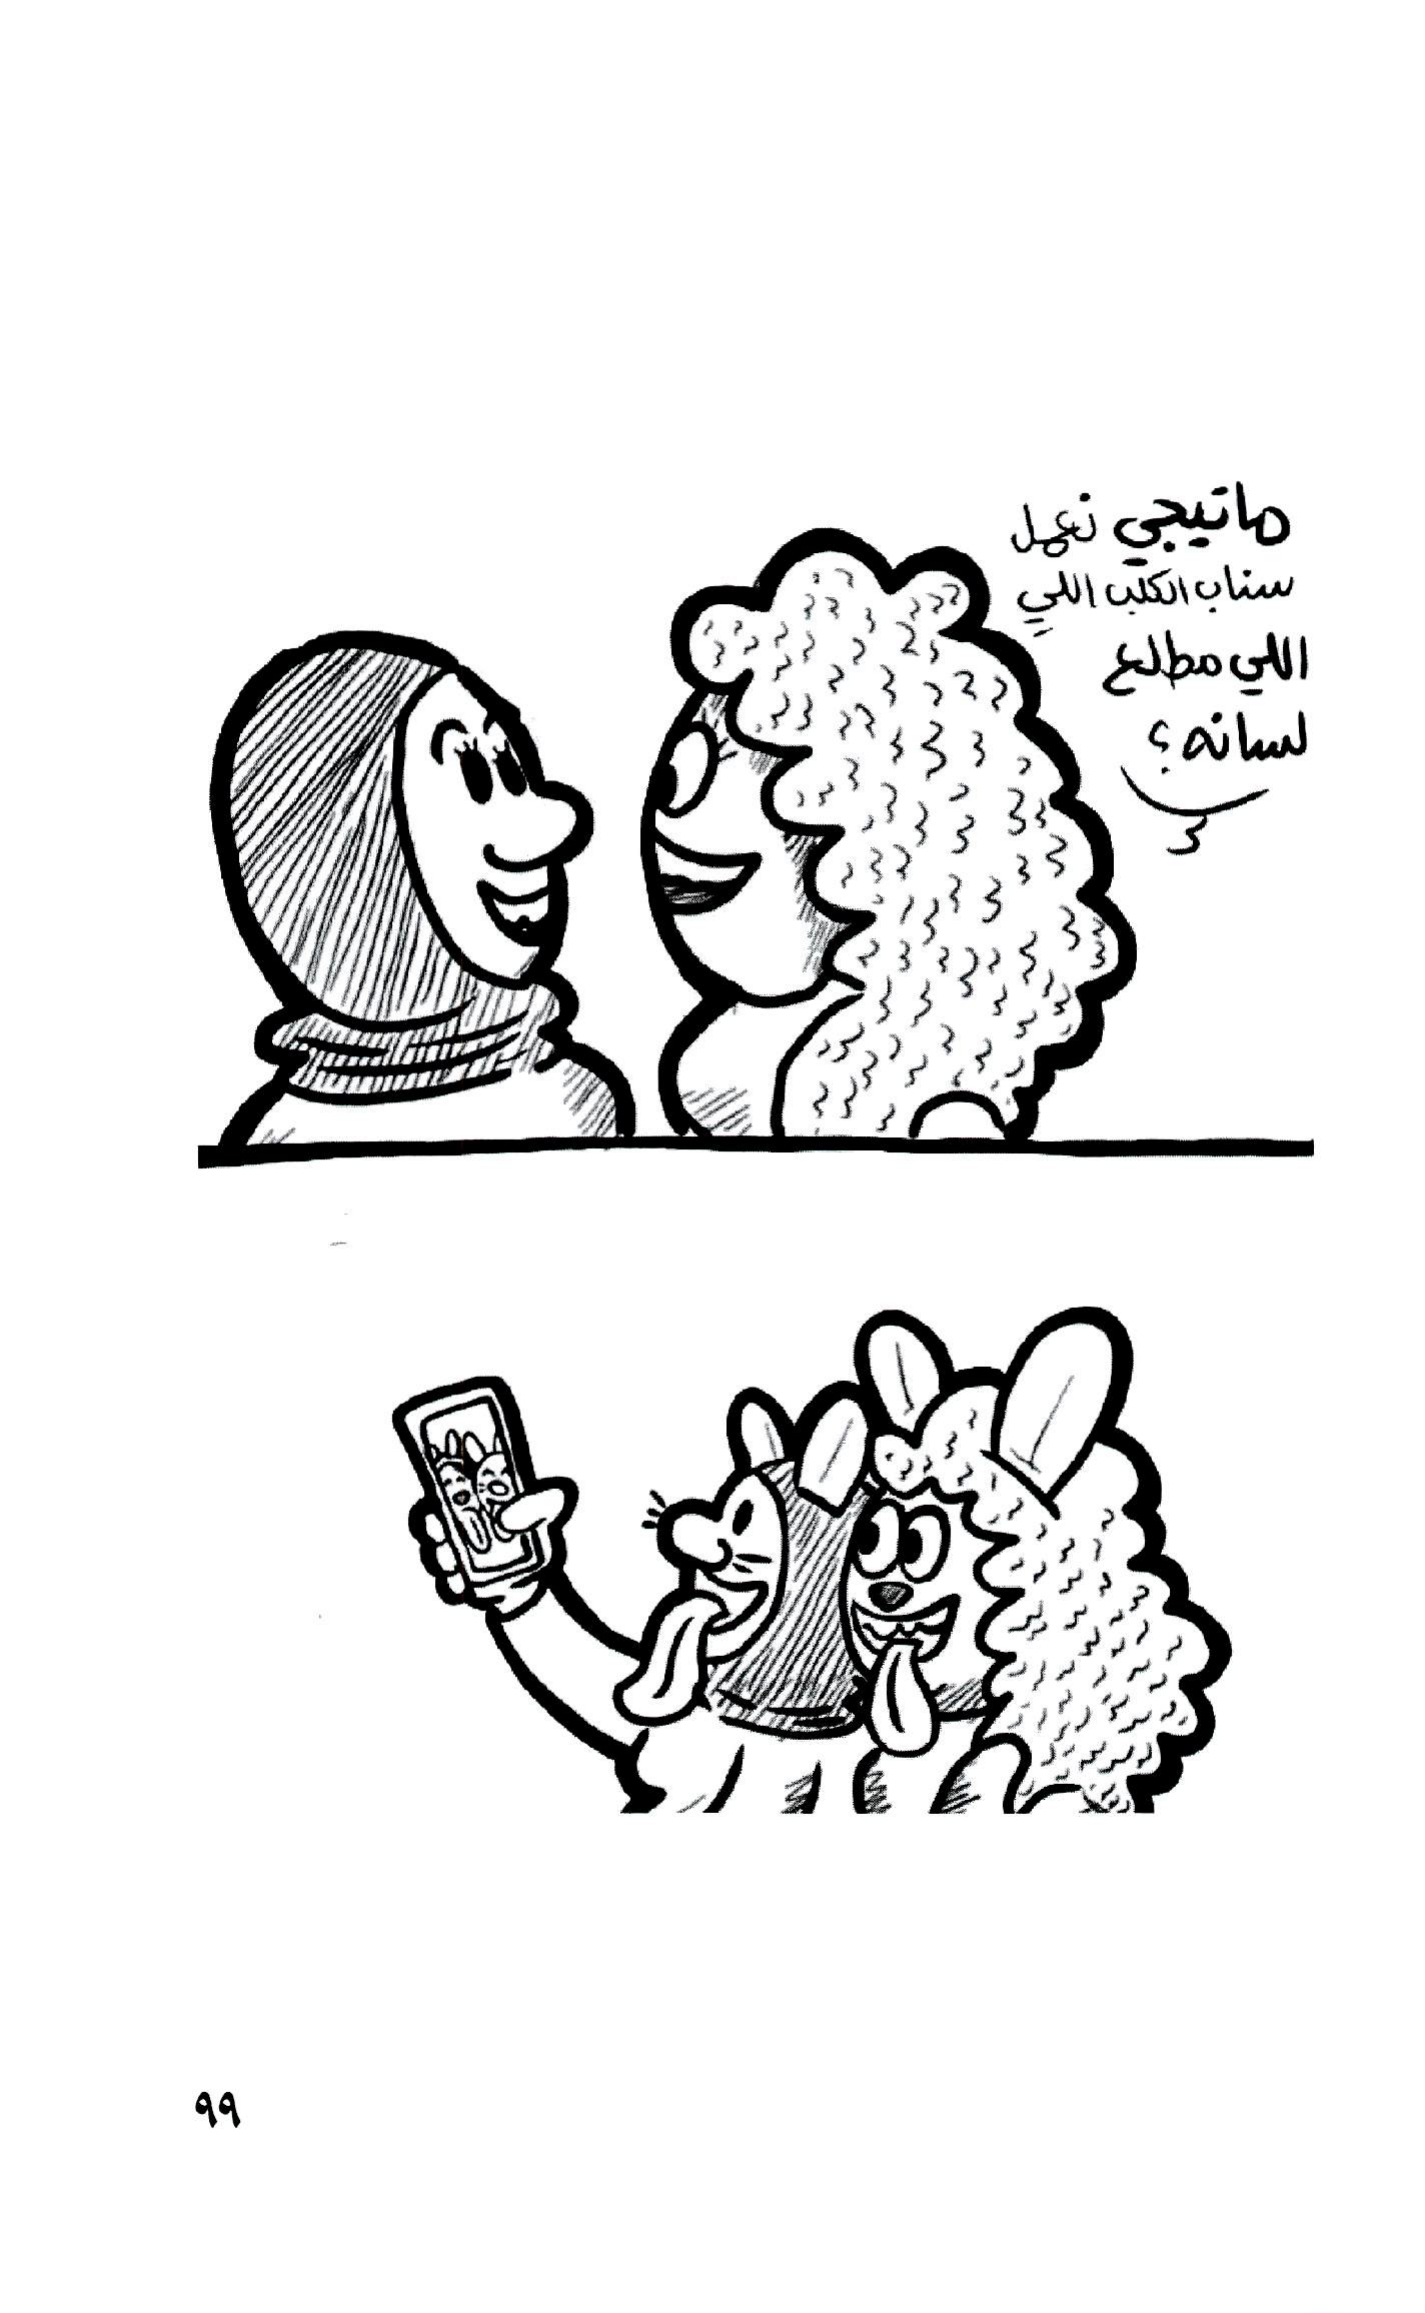 ماتيجي نعمل
سناب الكلب اللي
اللي مطلع
لسانه؟
٩٩